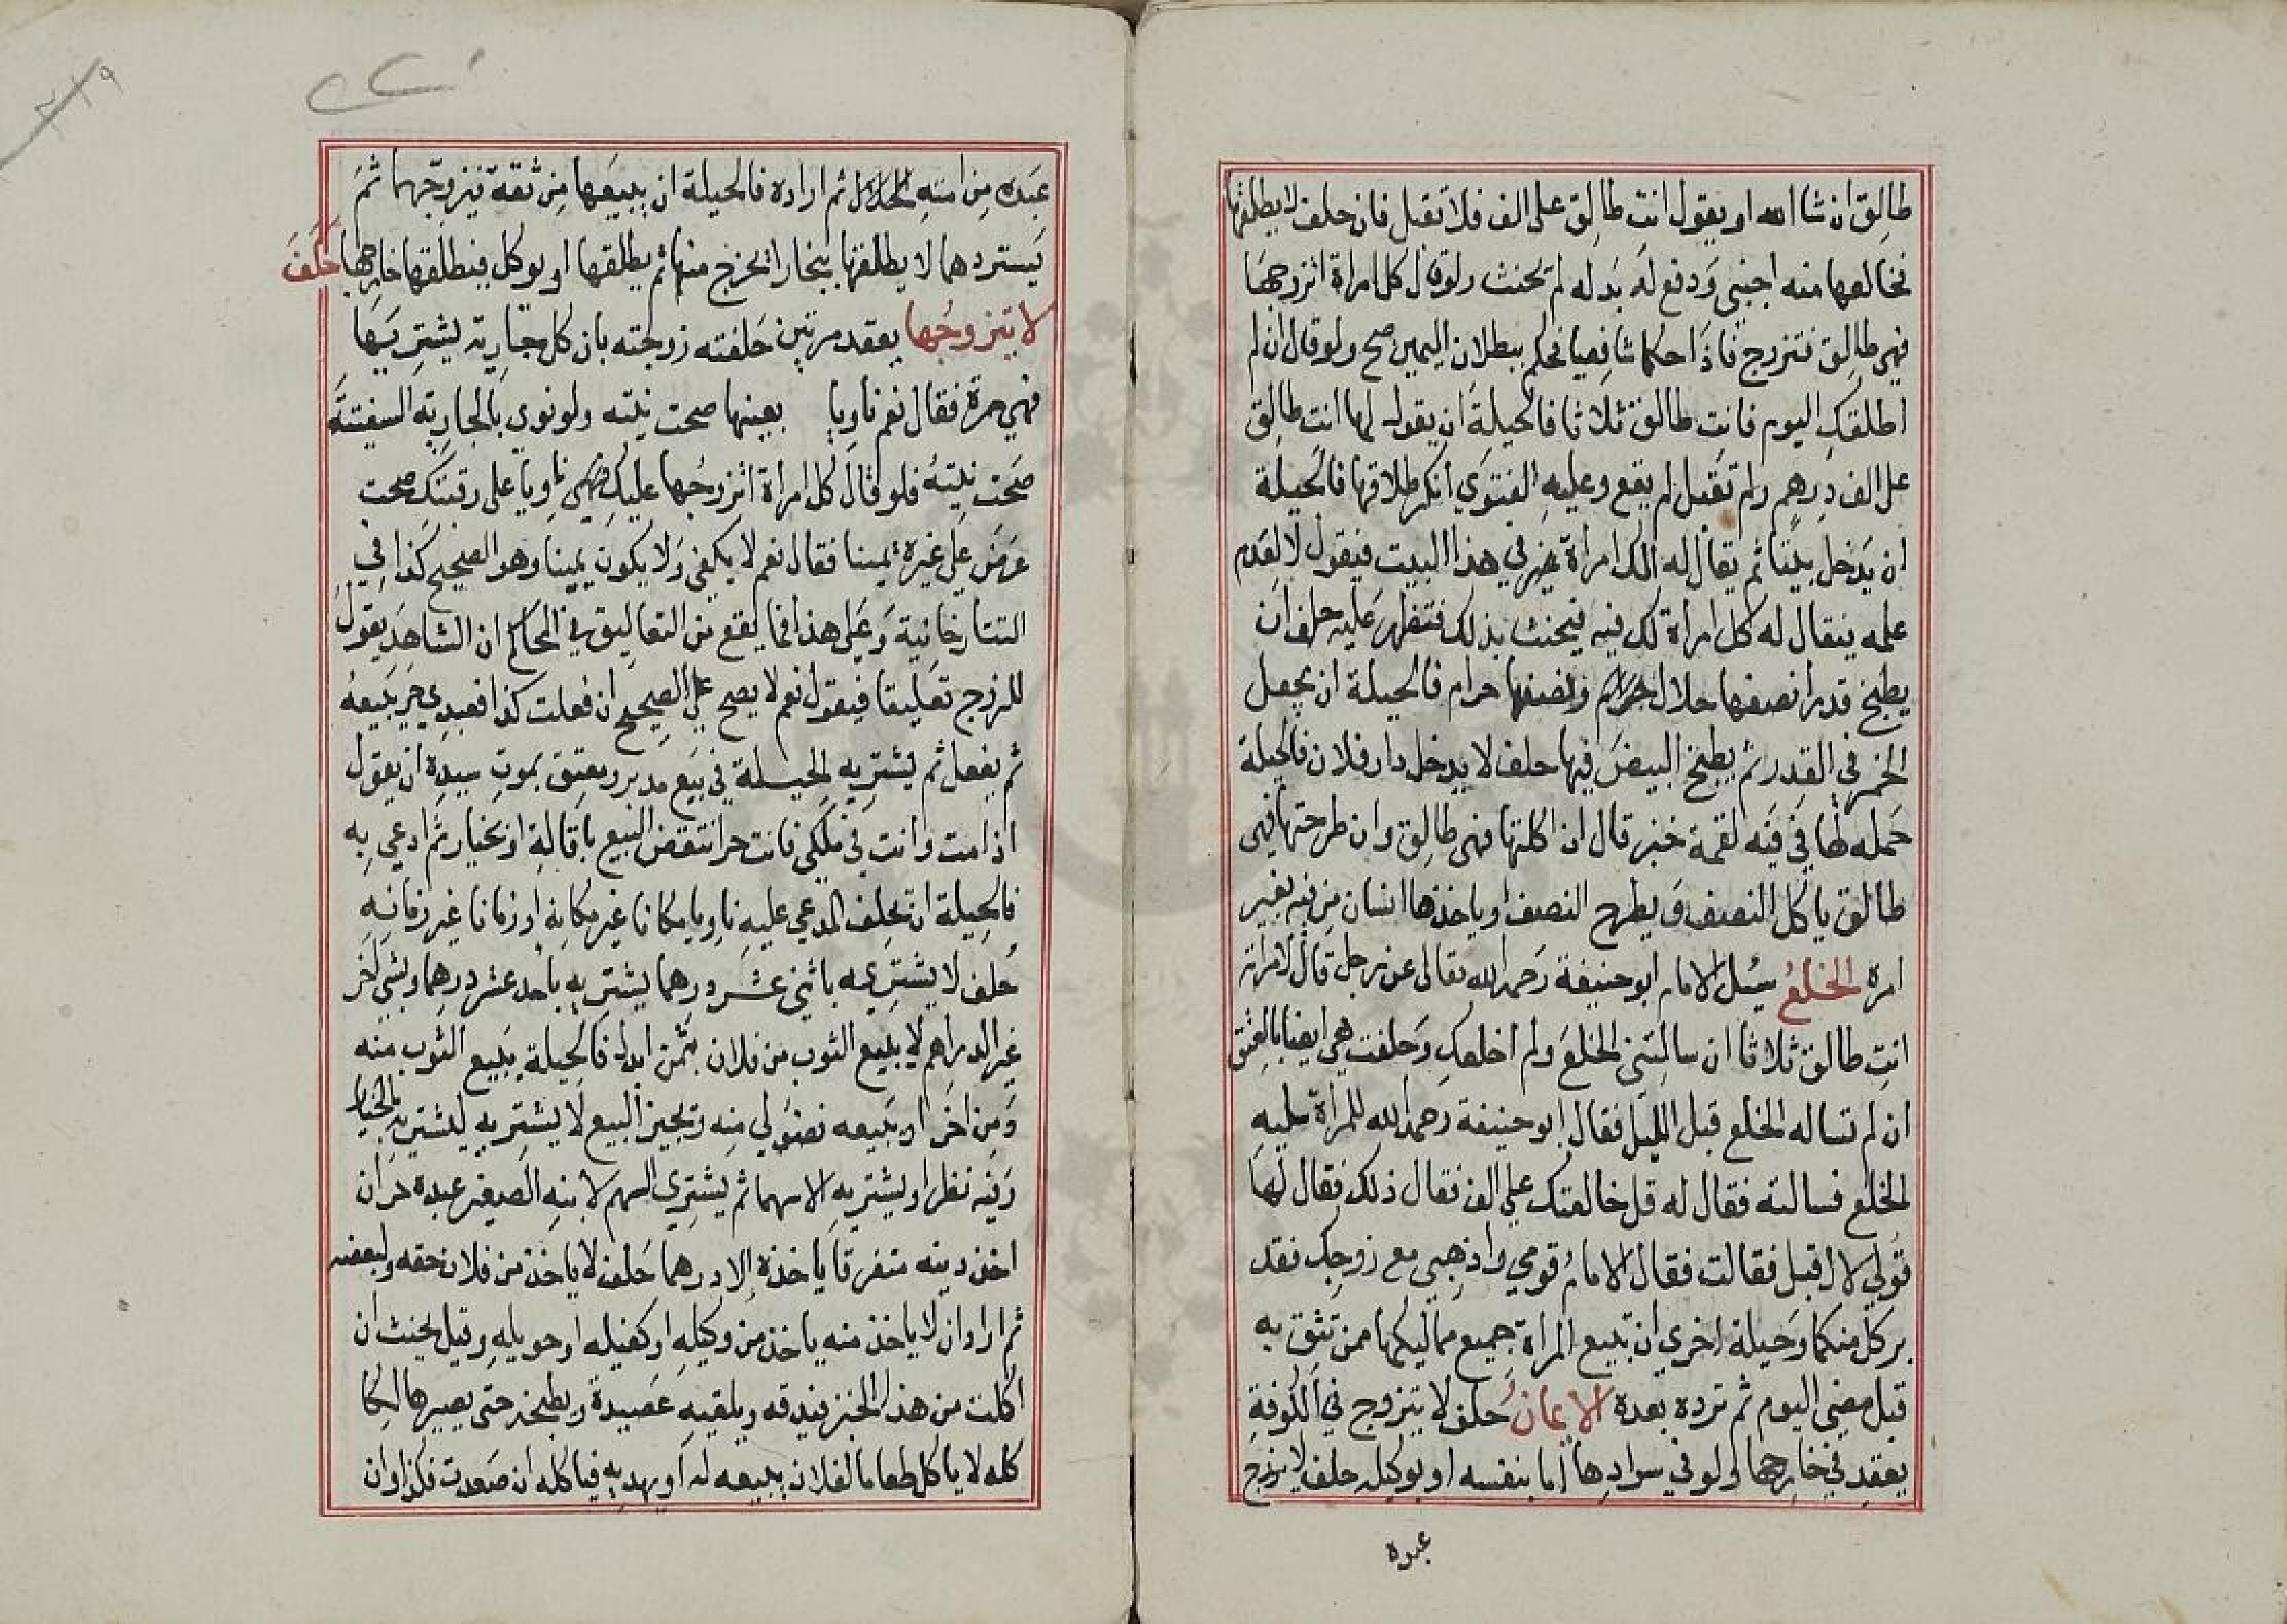 طالق ان شا الله او يقول انت طالق على الف فلا تقبل فان حلف لا يطلقها
فخالعها منه اجنبي ودفع له بدله لم يحنث ولو قال كل امراة اتزوجها
فهي طالق فتزوج فاذا حكما شافعيا فحكم ببطلان اليمين صح ولو قال ان لم
اطلقك اليوم فانت طالق ثلاثا فالحيلة ان يقول لها انت طالق
على الف درهم ولم تقبل لم يقع وعليه الفتوي انكر طلاقها فالحيلة
ان يدخل بيتا ثم يقال له الك امراة في هذا البيت فيقول لا لعدم
علمه يتقال له كل امراة لك فيه فيحنث بذلك فتظهر عليه حلف ان
يطبخ قدرا نصفها حلال ونصفها حرام فالحيلة ان يجعل
الخمر في القدر ثم يطبخ البيض فيها حلف لا يدخل دار فلان فالحيلة
حمله لها في فيه لقمة خبز قال ان اكلتها فهي طالق وان طرحتها فهي
طالق ياكل النصف ويطرح النصف او ياخذها انسان من فيه بغير
امره الخلع سئل الامام ابو حنيفة رحمه الله تعالى عن رجل قال لامراته
انت طالق ثلاثا ان سالتني الخلع ولم اخلعك وحلفت هي ايضا بالعتق
ان لم تساله الخلع قبل الليل فقال ابو حنيفة رحمه الله للمراة سليه
الخلع فسالته فقال له قل خالعتك على الف فقال ذلك فقال لها
قولي لا اقبل فقالت فقال الامام قومي واذهبي مع زوجك فقد
بر كل منكما وحيلة اخري ان تبيع المراة جميع مماليكها ممن تثق به
قبل مضي اليوم ثم ترده بعده الايمان حلف لا يتزوج في الكوفة
يعقد في خارجها ولو في سوادها اما بنفسه او بوكيله حلف لا يزوج
عبده
عبده من امته ثم اراده فالحيلة ان يبيعها من ثقة فيزوجهما ثم
يستردهما لا يطلقها ببخارا يخرج منها ثم يطلقها او يوكل فيطلقها خارجها حلف
لا يتزوجها بعقد مرتين حلفته زوجته بان كل جارية يشتريها
فهي حرة فقال نعم ناويا بعينها صحت نيته ولو نوي بالجارية السفينة
صحت نيته فلو قال كل امراة اتزوجها عليك فهي ناويا على رقبتك صحت
عرض على غيره يمينا فقال نعم لا يكفي ولا يكون يمينا وهو الصحيح كذا في
التتارخانية وعلى هذا فما يقع من التعاليق في المحاكم ان الشاهد يقول
للزوج تعليقا فيقول نعم لا يصح على الصحيح ان فعلت كذا فعبدي حر يبيعه
ثم يفعل ثم يشتريه الحيلة في بيع مدبر ويعتق بموت سيده ان يقول
اذا مت وانت في ملكي فانت حر انتقض البيع باقالة او بخيار ثم ادعي به
فالحيلة ان يحلف المدعي عليه ناويا مكانا غير مكانه او زمانا غير زمانه
حلف لا يشتريه باثني عشر درهما يشتريه باحد عشر درهما وبشي اخر
غير الدراهم لا يبيع الثوب من فلان بثمن ابدا فالحيلة يبيع الثوب منه
ومن اخر او يبيعه فضولي منه ويجيز البيع لا يشتريه يشتريه بالخيار
وفيه نظر او يشتريه الا سهما ثم يشتري السهم لابنه الصغير عبده حر ان
اخذ دينه متفرقا ياخذه الا درهما حلف لا ياخذ من فلان حقه ولبعضه
ثم اراد ان لا ياخذ منه ياخذ من وكيله او كفيله او حويله وقيل يحنث ان
اكلت من هذا الخبز فيدقه ويلقيه عصيدة ويطبخه حتى يصير هالكا
كله لا ياكل طعاما لفلان يبيعه له او يهديه فياكله ان صعدت فكذا وان